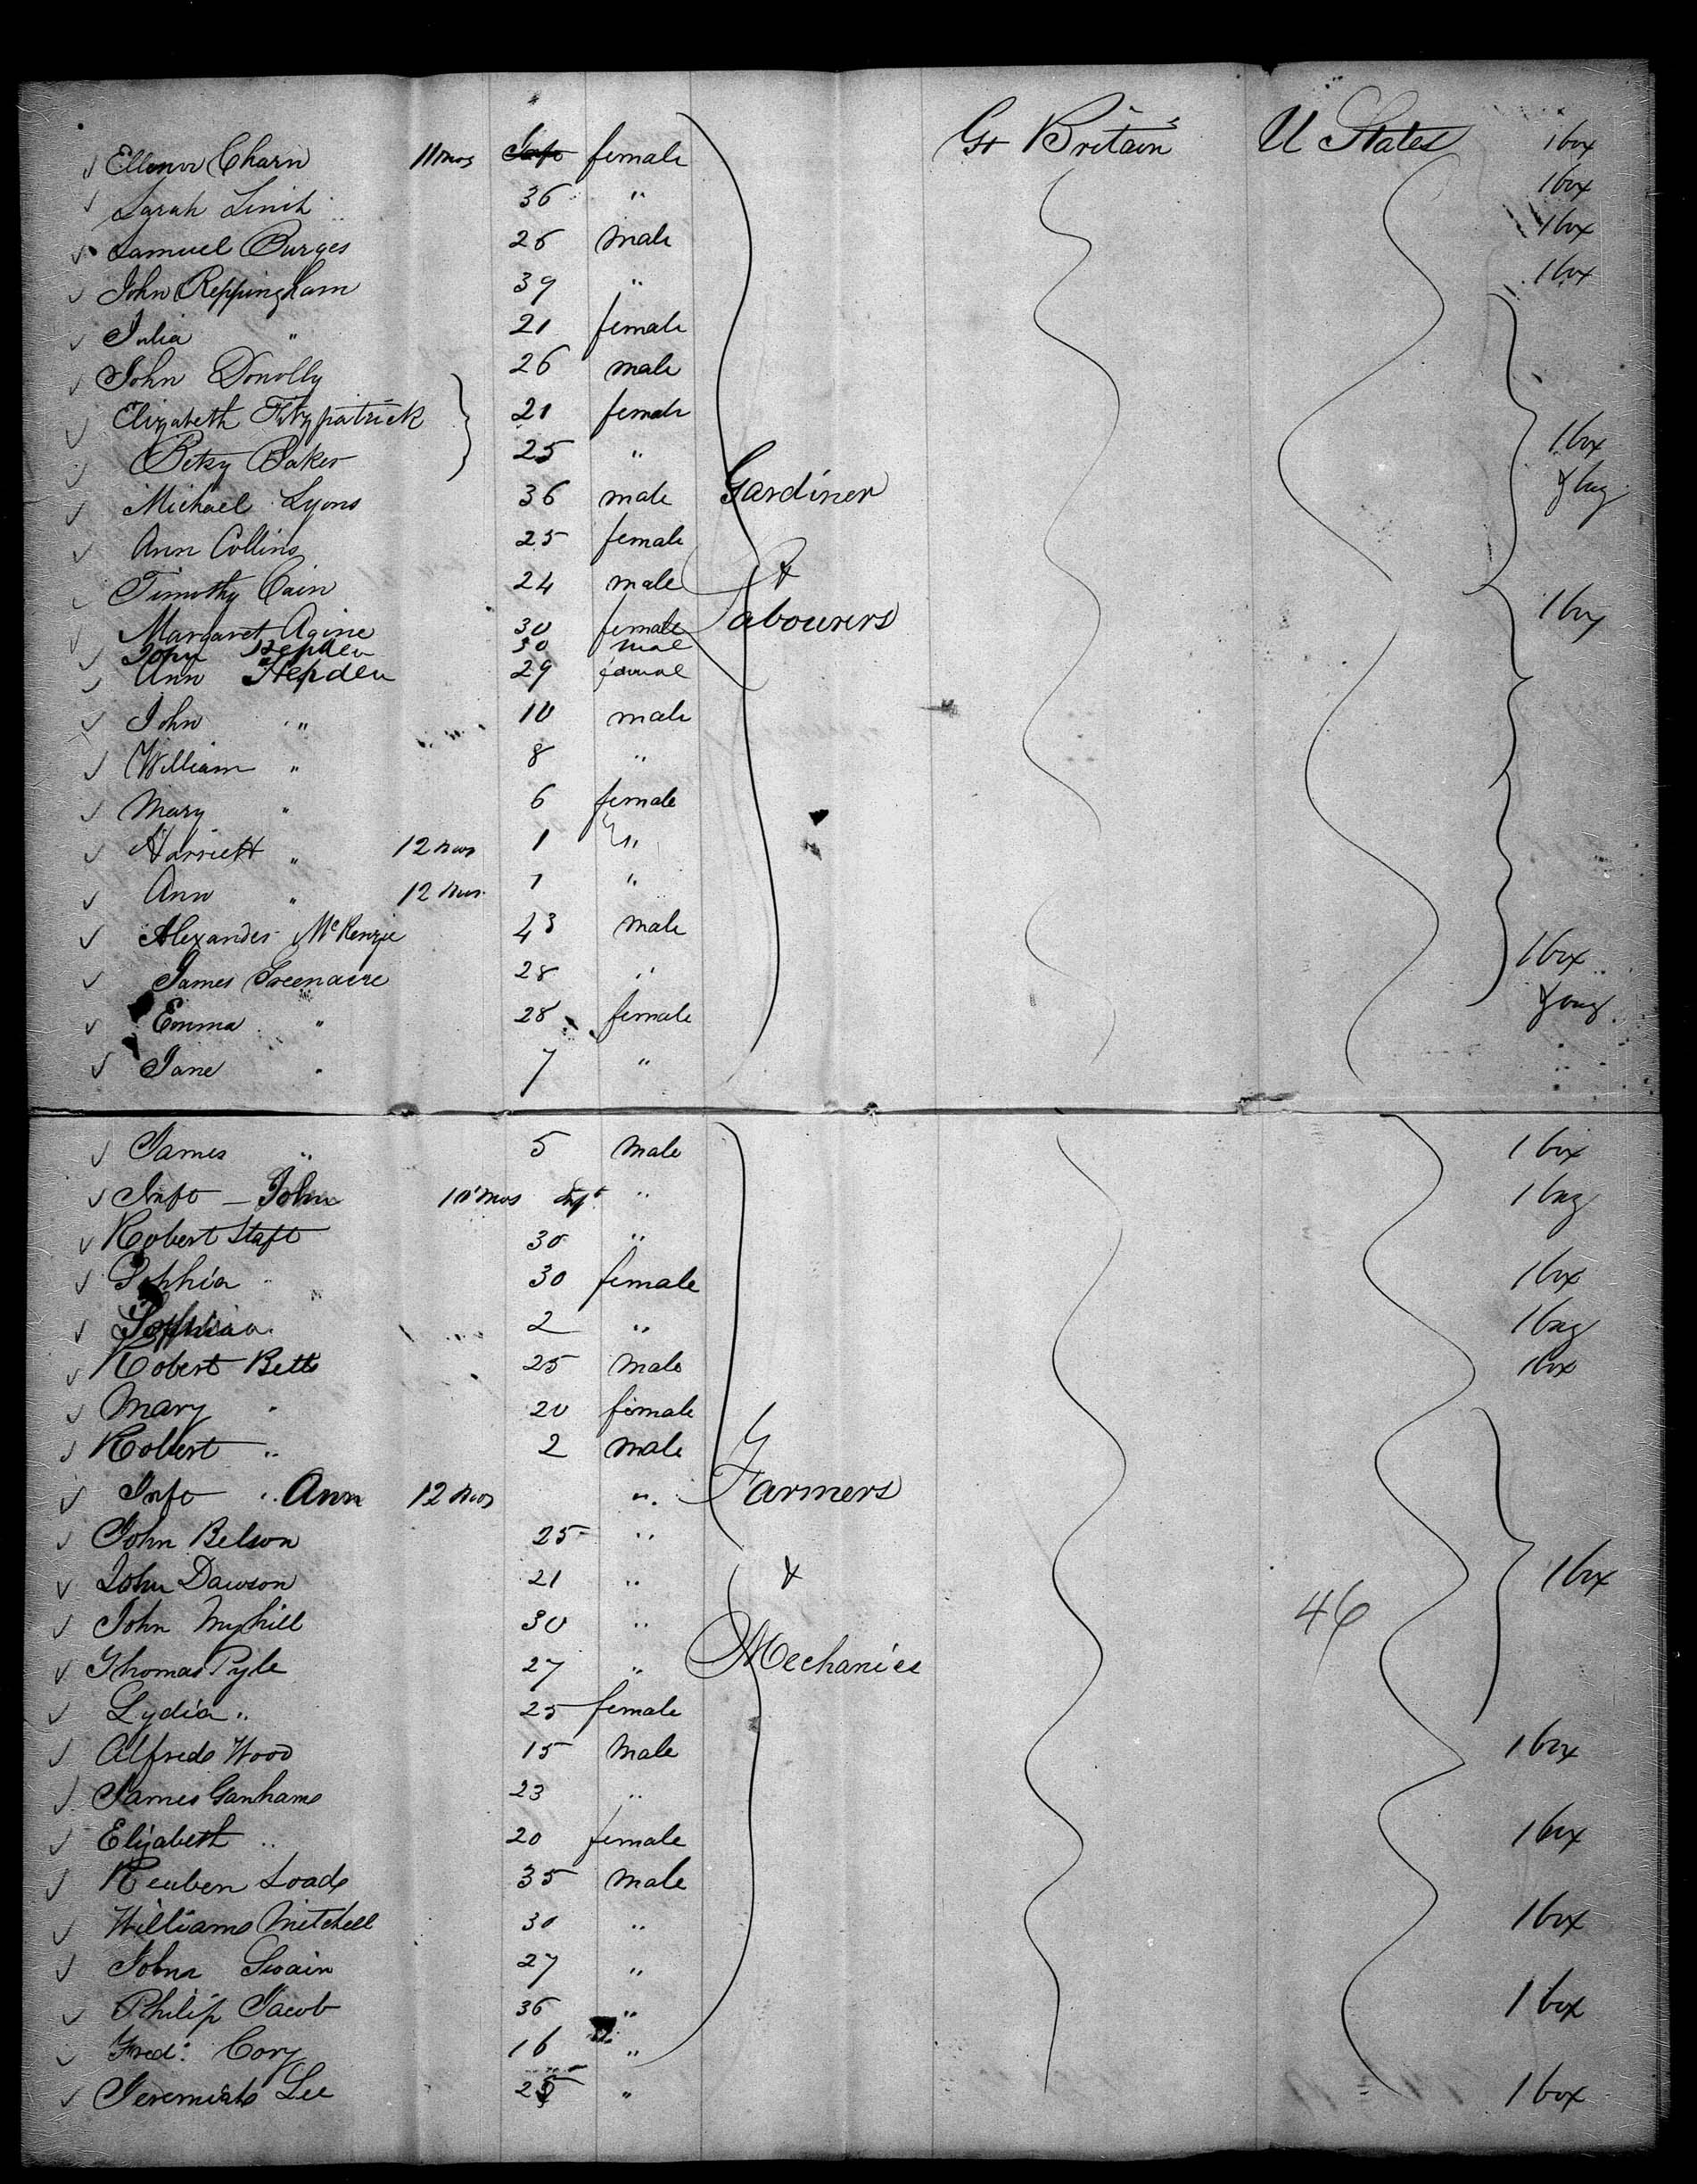 Ellenor Charn 11 mos Inft female Gt Britain U States 1 box
Sarah Linih 36 " 1 box
Samuel Burges 26 male 1 box
John Reppingham 39 " 1 box
Julia " 21 female
John Donolly 26 male
Elizabeth Fitzpatrick 21 female 1 box
Betsy Baker 25 " & bag
Michael Lyons 36 male Gardiner
Ann Collins 25 female &
Timothy Cain 24 male Labourers 1 box
Margaret Agine 30 female
John Hepden 30 male
Ann Hepden 29 female
John " 10 male
William " 8 "
Mary " 6 female
Harriett " 12 mos 1 "
Ann " 12 mos 1 "
Alexander McKenzie 43 male 1 box
James Greenacre 28 " & bag
Emma " 28 female
Jane " 7 "
James " 5 male 1 box
Inft — John 10 mos Inft " 1 bag
Robert Staft 30 "
Sophia " 30 female 1 box
Sophia 2 " 1 bag
Robert Betts 25 male 1 box
Mary " 20 female
Robert " 2 male
Inft " Ann 12 mos " Farmers
John Belson 25 "
John Dawson 21 " & 1 box
John Myhill 30 " 46
Thomas Pyle 27 " Mechanics
Lydia " 25 female
Alfred Wood 15 male 1 box
James Ganham 23 "
Elizabeth " 20 female 1 box
Reuben Loads 35 male
William Mitchell 30 " 1 box
John Swain 27 "
Philip Jacob 36 " 1 box
Fred: Cory 16 "
Jeremiah Lee 25 " 1 box